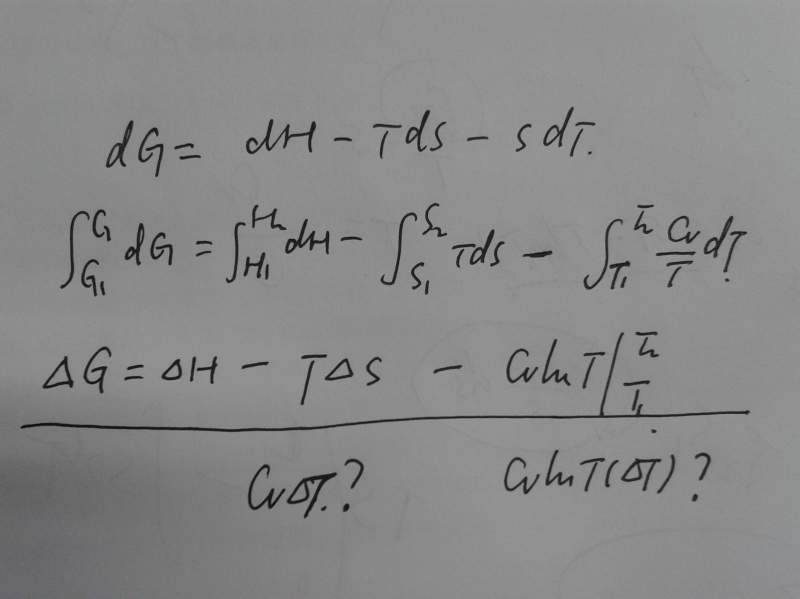 dG = dH - TdS - SdT.
∫_{G₁}^{G} dG = ∫_{H₁}^{H₂} dH - ∫_{S₁}^{S₂} TdS - ∫_{T₁}^{T₂} Cv/T dT?
ΔG = ΔH - TΔS - Cv ln T |_{T₁}^{T₂}
CvΔT.? Cv ln T(ΔT)?